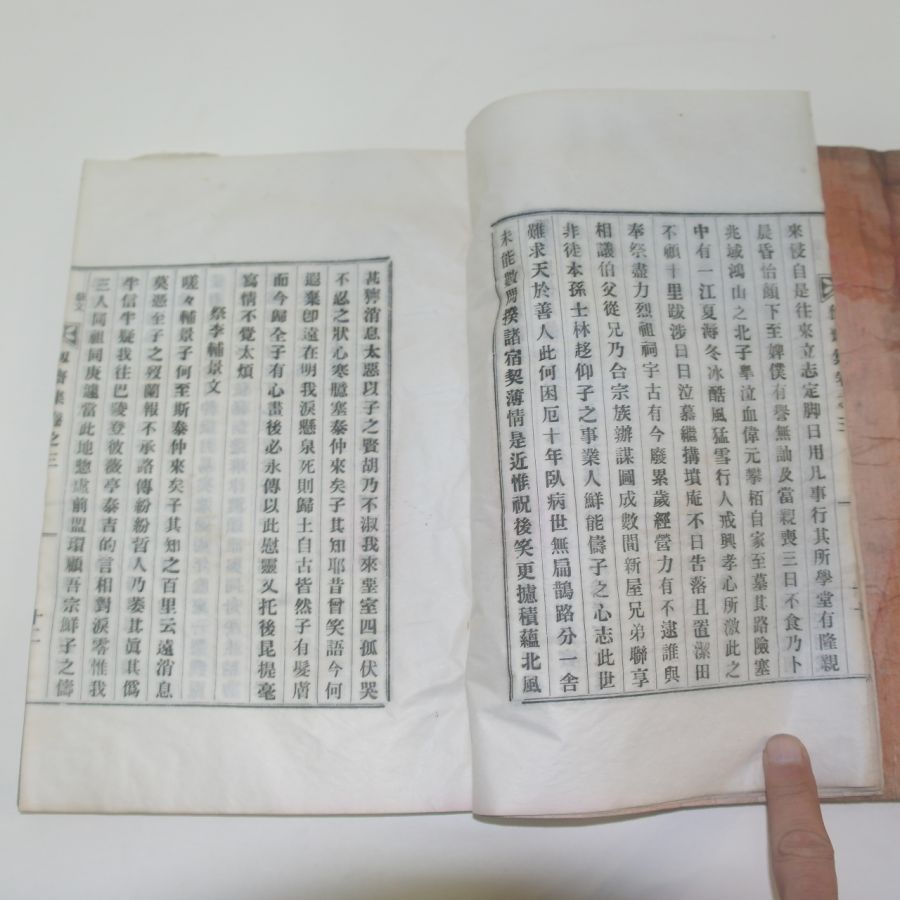 來浸自是往來立志定脚日用凡事行其所學堂有隆親
晨昏怡顔下至婢僕有譽無訕及當親喪三日不食乃卜
兆域鴻山之北子擧泣血偉元攀栢自家至墓其路險塞
中有一江夏海冬冰酷風猛雪行人戒興孝心所激此之
不顧十里跋涉日日泣慕繼搆墳庵不日告落且置潔田
奉祭盡力烈祖祠宇古有今廢累歲經營力有不逮誰與
相議伯父從兄乃合宗族辦謀圖成數間新屋兄弟聯享
非徒本孫士林趍仰子之事業人鮮能儔子之心志此世
難求天於善人此何困厄十年臥病世無扁鵲路分一舍
未能數問揆諸宿契薄情是近惟祝後笑更攄積蘊北風
甚獰消息太惡以子之賢胡乃不淑我來堊室四孤伏哭
不忍之狀心寒臆塞泰仲來矣子其知耶昔曾笑語今何
遐棄卽遠在明我淚懸泉死則歸土自古皆然子有髮膚
而今歸全子有心畫後必永傳以此慰靈又托後昆提毫
寫情不覺太煩
祭李輔景文
嗟々輔景子何至斯泰仲來矣子其知之百里云遠消息
莫憑至子之歿蘭報不承諮傳紛紛哲人乃萎其眞其僞
半信半疑我往巴陵登彼薇亭泰吉的言相對淚零惟我
三人同祖同庚遠當此地惣虛前盟環顧吾宗鮮子之儔
祭文
齋集卷之三
十二